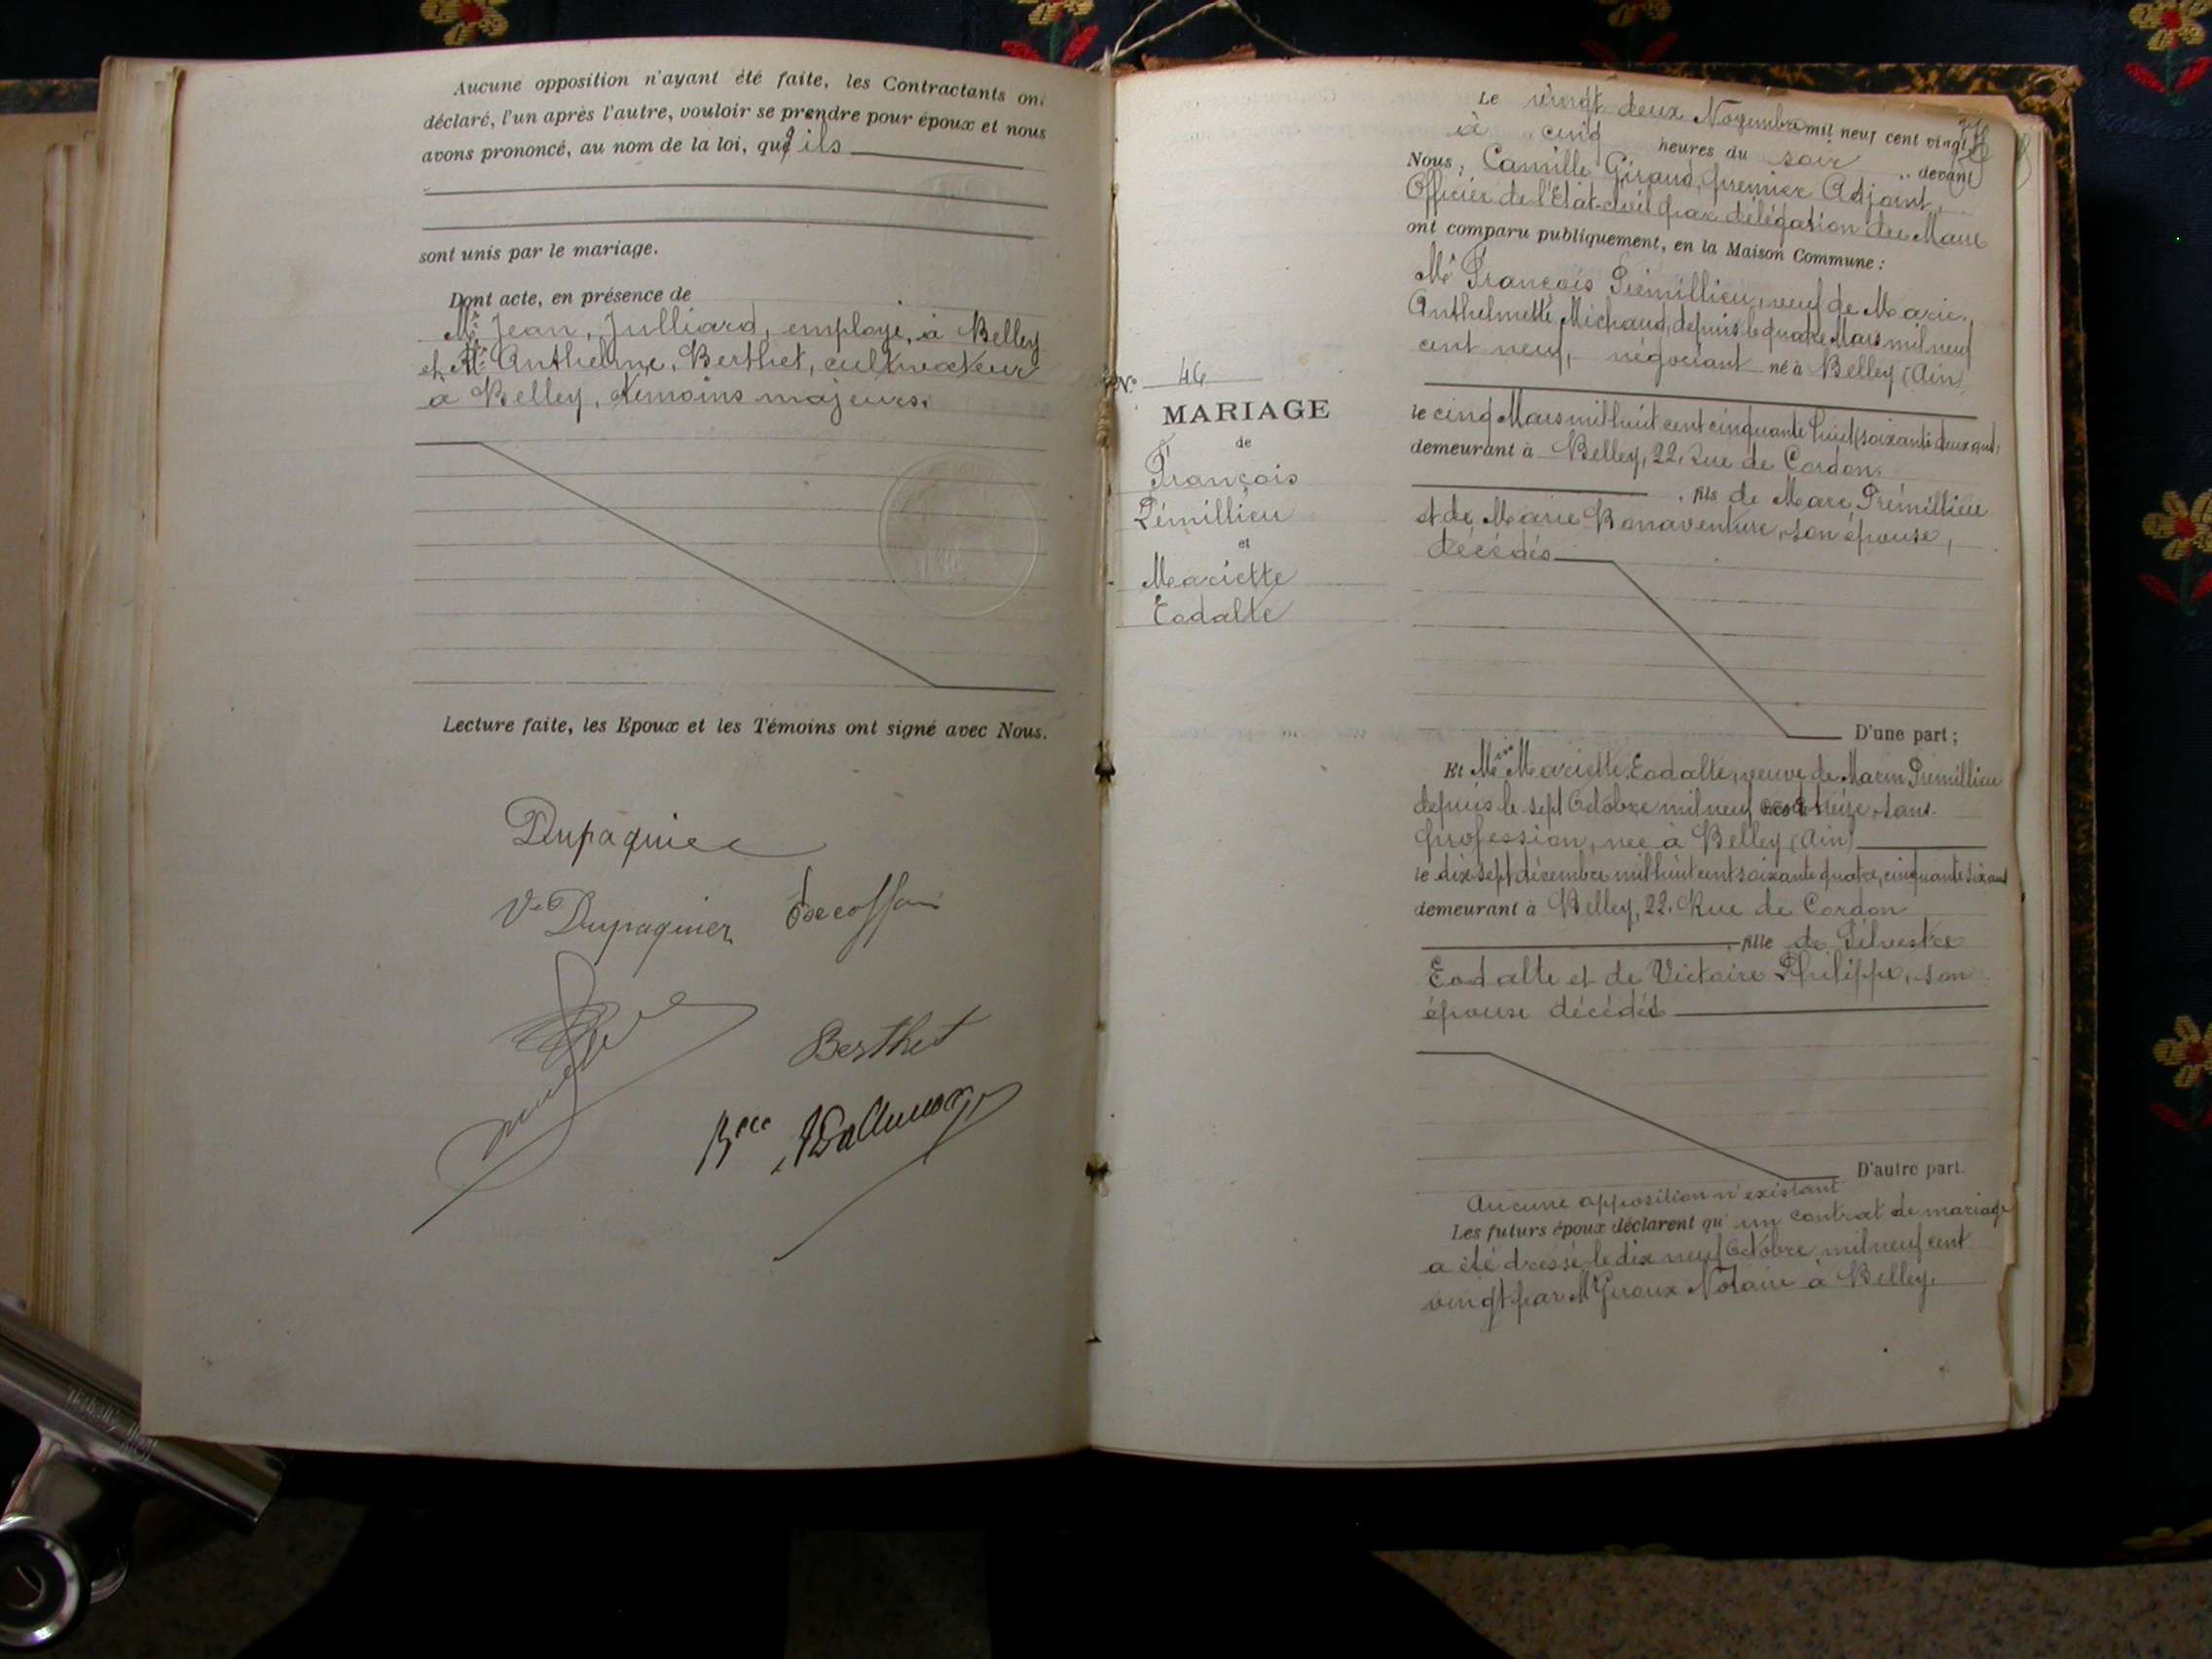 Aucune opposition n'ayant été faite, les Contractants ont
déclaré, l'un après l'autre, vouloir se prendre pour époux et nous
avons prononcé, au nom de la loi, qu'ils
sont unis par le mariage.
Dont acte, en présence de
Mr Jean, Julliard, employé, à Belley
et Mr Anthelme, Berthet, cultivateur
à Belley, témoins majeurs.
Lecture faite, les Epoux et les Témoins ont signé avec Nous.
Dupaquier
Ve Dupaquier
Berthet
Le vingt deux Novembre mil neuf cent vingt
à cinq heures du soir devant
Nous, Camille Giraud, premier Adjoint,
Officier de l'Etat-civil par délégation du Maire
ont comparu publiquement, en la Maison Commune :
Mr François Prémillieu, veuf de Marie
Anthelmette Michaud, depuis le quatre Mars mil neuf
cent neuf, négociant né à Belley (Ain)
le cinq Mars mil huit cent cinquante huit, soixante deux ans,
demeurant à Belley, 22, Rue de Cordon,
, fils de Marc Prémillieu
et de Marie Bonaventure, son épouse,
décédés
D'une part ;
N° 46
MARIAGE
de
François
Prémillieu
et
Mariette
Eodalte
Et Mme Mariette Eodalte, veuve de Marin Prémillieu
depuis le sept Octobre mil neuf cent treize, sans
profession, née à Belley (Ain)
le dix sept décembre mil huit cent soixante quatre, cinquante six ans
demeurant à Belley, 22, Rue de Cordon
, fille de Silvestre
Eodalte et de Victoire Philippe, son
épouse décédés
D'autre part.
Aucune opposition n'existant
Les futurs époux déclarent qu'un contrat de mariage
a été dressé le dix neuf Octobre mil neuf cent
vingt par Me Giroux Notaire à Belley.